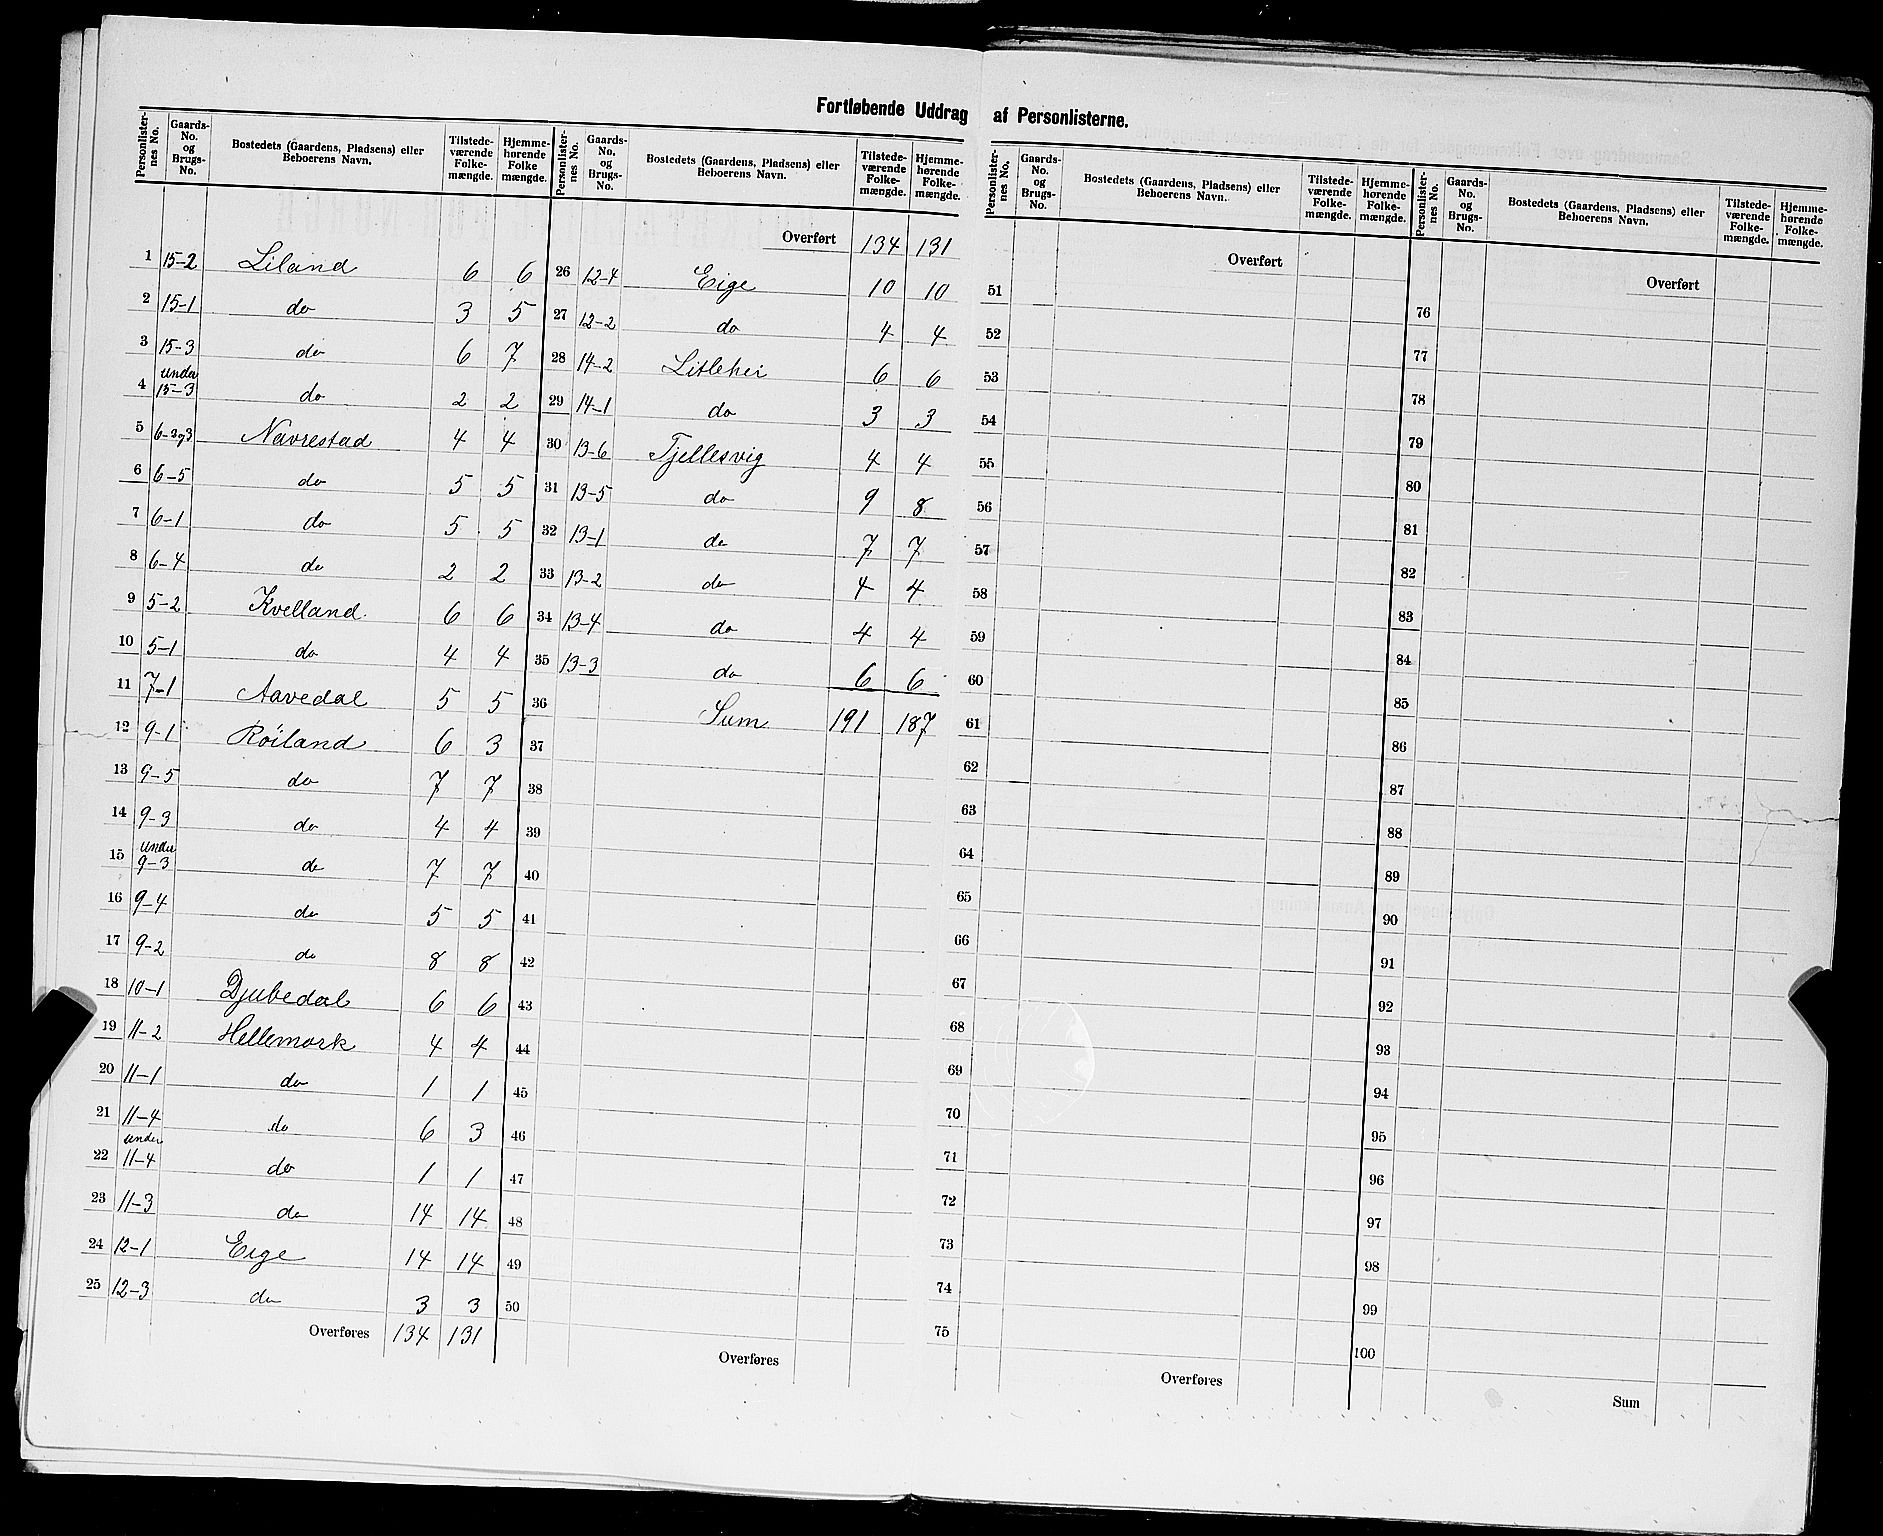 Fortløbende Uddrag af Personlisterne.
Personlister-nes No. | Gaards-No. og Brugs-No. | Bostedets (Gaardens, Pladsens) eller Beboerens Navn. | Tilstede-værende Folke-mængde. | Hjemme-hørende Folke mængde.
1 15-2 Liland 6 6
2 15-1 do 3 5
3 15-3 do 6 7
4 under 15-3 do 2 2
5 6-2og3 Navrestad 4 4
6 6-5 do 5 5
7 6-1 do 5 5
8 6-4 do 2 2
9 5-2 Kvelland 6 6
10 5-1 do 4 4
11 7-1 Aavedal 5 5
12 9-1 Röiland 6 3
13 9-5 do 7 7
14 9-3 do 4 4
15 under 9-3 do 7 7
16 9-4 do 5 5
17 9-2 do 8 8
18 10-1 Djubedal 6 6
19 11-2 Hellemork 4 4
20 11-1 do 1 1
21 11-4 do 6 3
22 under 11-4 do 1 1
23 11-3 do 14 14
24 12-1 Eige 14 14
25 12-3 do 3 3
Overføres 134 131
Personlister-nes No. | Gaards-No. og Brugs-No. | Bostedets (Gaardens, Pladsens) eller Beboerens Navn. | Tilstede-værende Folke-mængde. | Hjemme-hørende Folke-mængde.
Overført 134 131
26 12-4 Eige 10 10
27 12-2 do 4 4
28 14-2 Litlehei 6 6
29 14-1 do 3 3
30 13-6 Tjellesvig 4 4
31 13-5 do 9 8
32 13-1 do 7 7
33 13-2 do 4 4
34 13-4 do 4 4
35 13-3 do 6 6
36 Sum 191 187
37
38
39
40
41
42
43
44
45
46
47
48
49
50
Overføres
Personlister-nes No. | Gaards-No. og Brugs-No. | Bostedets (Gaardens, Pladsens) eller Beboerens Navn. | Tilstede-værende Folke-mængde. | Hjemme-hørende Folke-mængde.
Overført
51
52
53
54
55
56
57
58
59
60
61
62
63
64
65
66
67
68
69
70
71
72
73
74
75
Overføres
Personlister-nes No. | Gaards-No. og Brugs-No. | Bostedets (Gaardens, Pladsens) eller Beboerens Navn. | Tilstede-værende Folke-mængde. | Hjemme-hørende Folke-mængde.
Overført
76
77
78
79
80
81
82
83
84
85
86
87
88
89
90
91
92
93
94
95
96
97
98
99
100
Sum